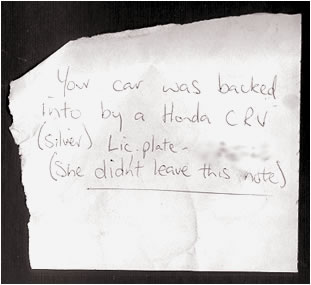 Your car was backed
into by a Honda CRV
(silver) Lic. plate -
(she didn't leave this note)